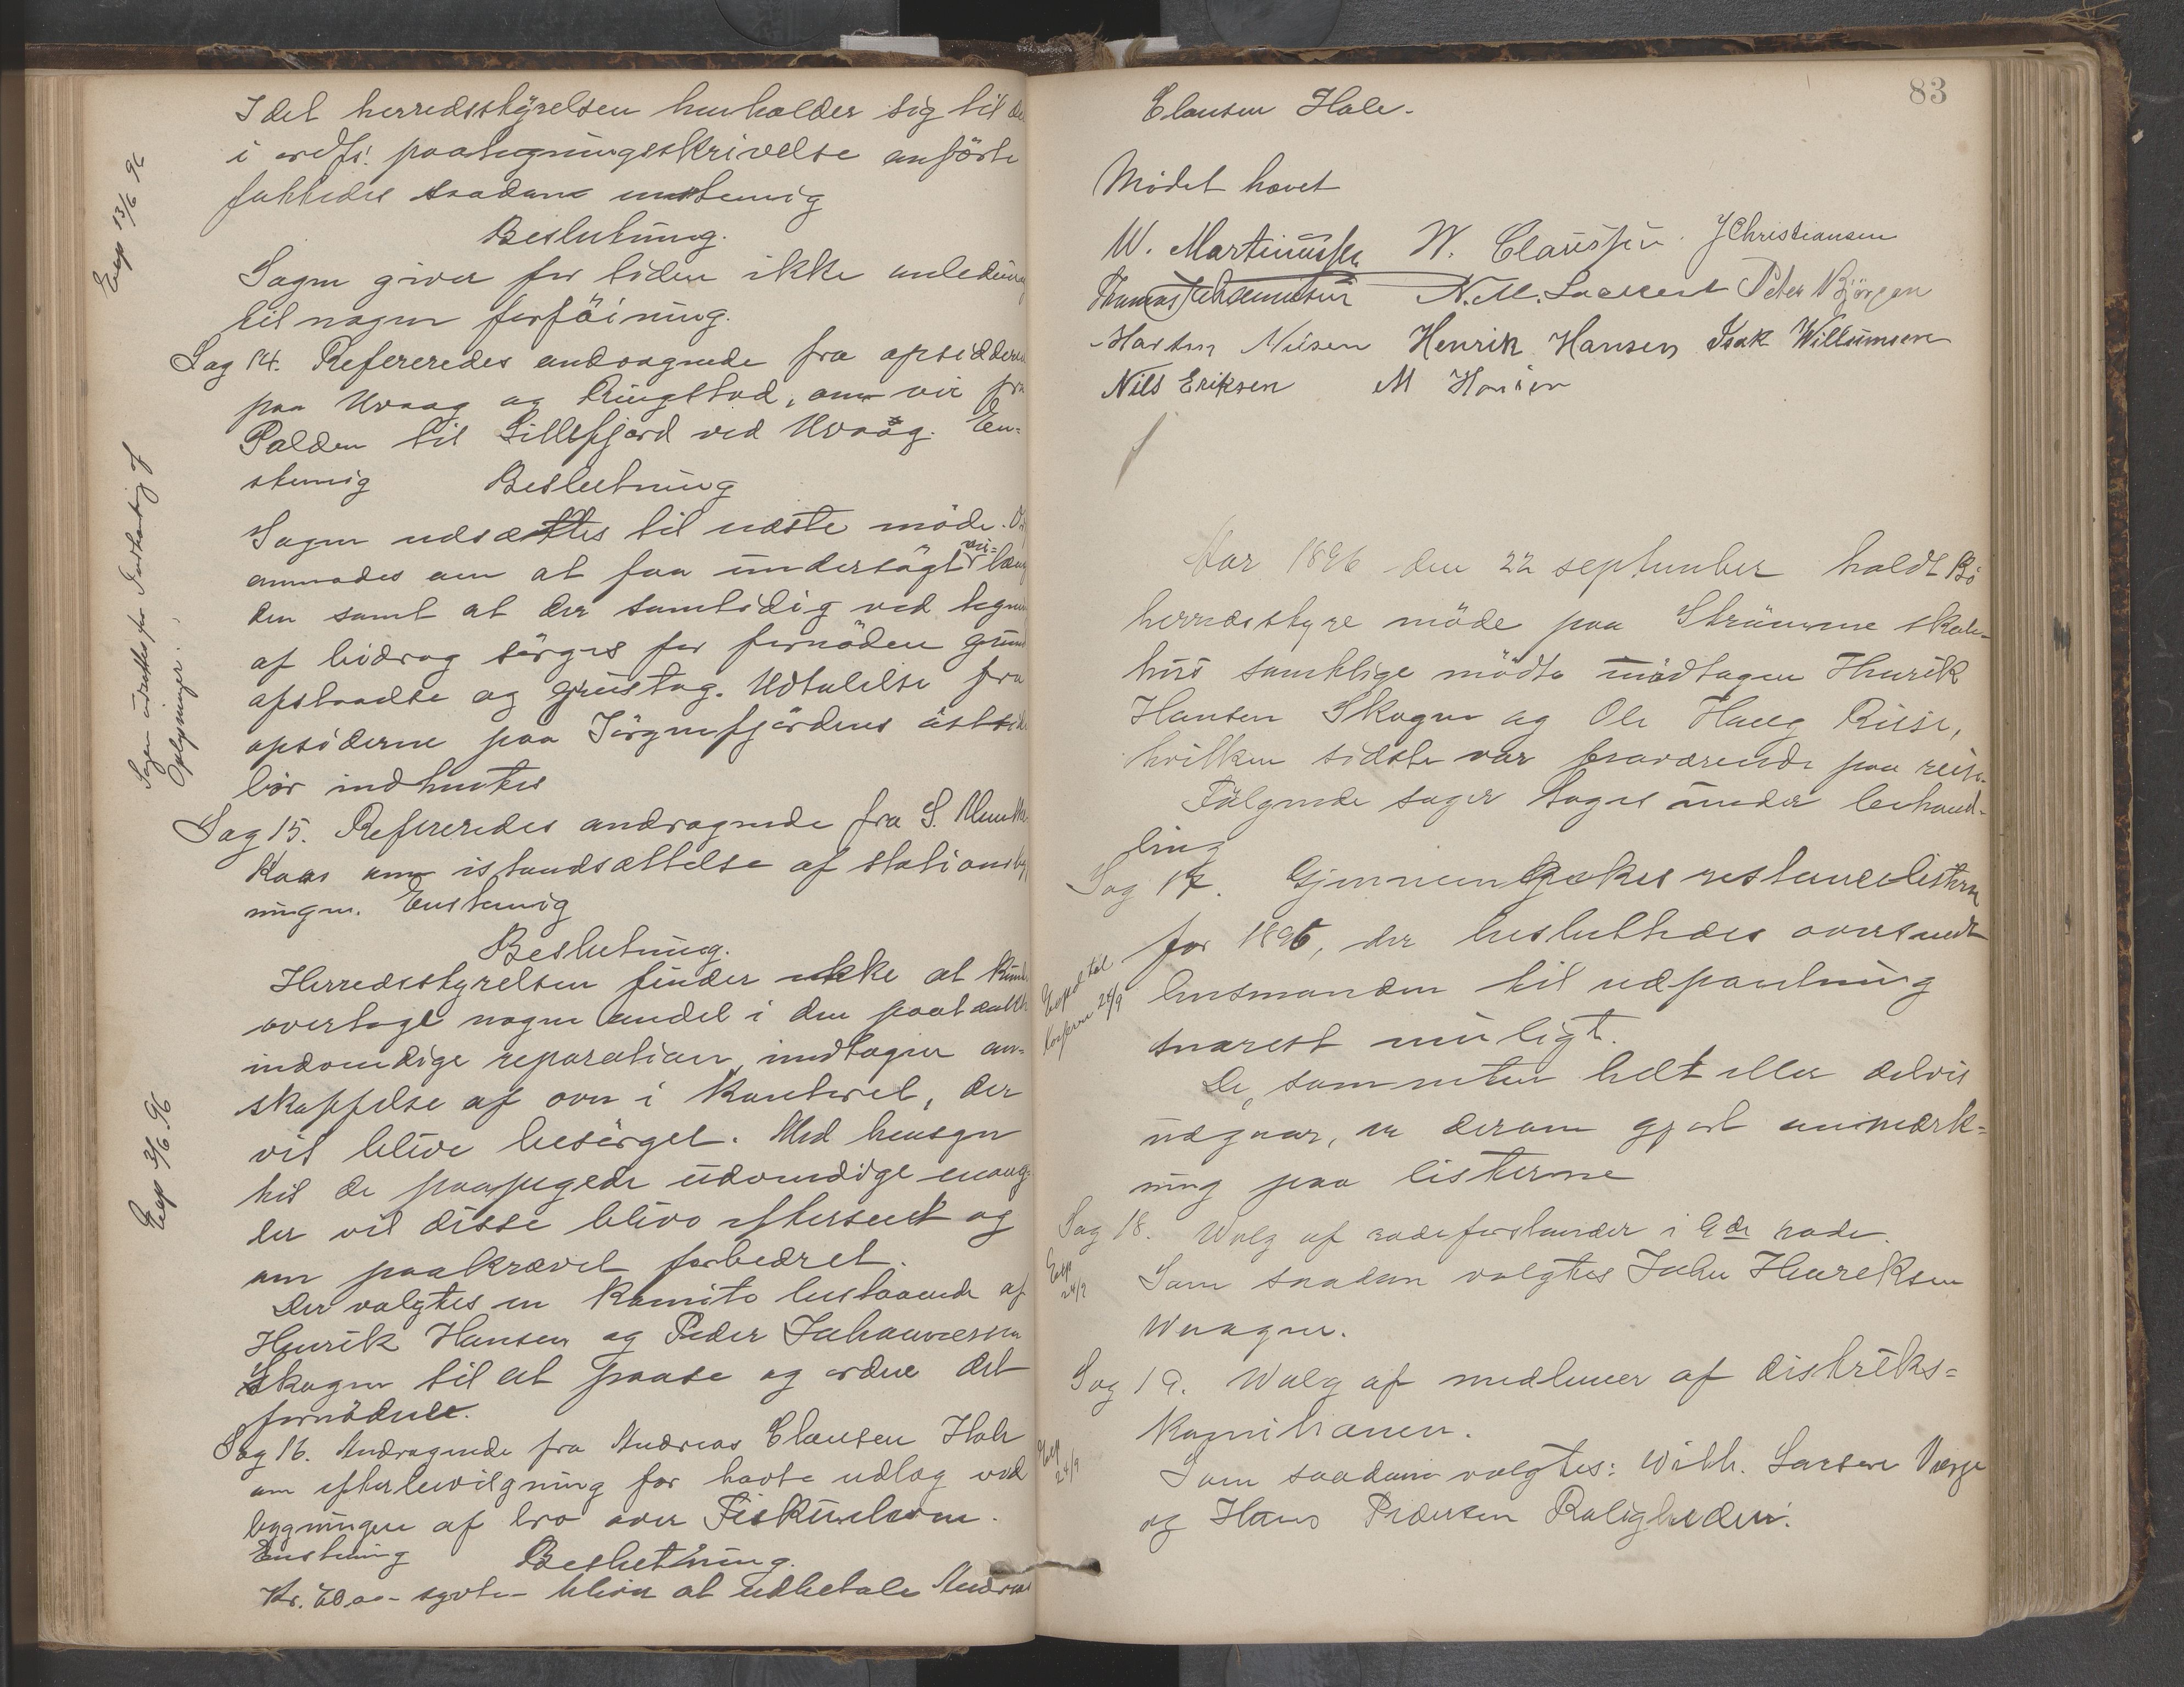 I det herredsstyrelsen henholder sig til de
i ordf. paategningsskrivelse anförte
fattedes saadan enstemig
Beslutning.
Sagen giver for tiden ikke anledning
til nogen forföining.
Exp 13/6 96
Sag 14. Refereredes andragende fra opsidderne
paa Uvaag og Ringstad, om vei fra
Polden til Gillefjord ved Uvaag. En-
stemig Beslutning
Sagen udsættes til næste möde.
anmodes om at faa undersögt vei=
den samt at der samtidig ved tegning
af bidrag sörges for fornöden grund
afstaaelse og grustag. Udtalelse fra
opsiderne paa Jörgenfjordens östside
bör indhentes
Sagen udsættes for Indhenting af
Oplysninger.
Sag 15. Refereredes andragende fra S.
Kaas om istandsættelse af stationsbyg
ningen. Enstemig
Beslutning.
Herredsstyrelsen finder ikke at kunde
overtage nogen andel i den paatænkte
indvendige reparation, undtagen an-
skaffelse af ovn i Kontoret, der
vil blive besörget. Med hensyn
til de paapegede udvendige mang-
ler vil disse blive efterseet og
om paakrævet forbedret.
Der valgtes en Komite bestaaende af
Henrik Hansen og Peder Johannessen
Skagen til at paase og ordne det
fornödne.
Exp 3/6 96
Sag 16. Andragende fra Andreas Clausen Hole
om efterbevilgning for havte udlæg ved
bygningen af bro over
Enstemig Beslutning.
Kr. 70 00 sytti bliver at udbetale Andreas
83
Clausen Hole.
Mödet hævet
W. Martinussen W. Claussen. J Christiansen
Thomas Johannesen N.M. Lockert Peter Björgen
Martin Nilsen Henrik Hansen Isak Willumsen
Nils Eriksen M Hansen
Aar 1896 den 22 september holdt Bö
herredsstyre möde paa Strömme skole-
hus samtlige mödte undtagen Henrik
Hansen Skagen og Ole Haug Risse,
hvilken sidste var fraværende paa reise.
Fölgende sager toges under behand-
ling
Sag 17. Gjennemgikkes restancelisterne
for 1895, der besluttedes oversendt
lensmanden til udpantning
snarest muligt.
De, som enten helt eller delvis
udgaar, er derom gjort anmærk=
ning paa listerne
Exped til
24/9
Sag 18. Valg af rodeforstander i 9de rode.
Som saadan valgtes Johs Henriksen
Vaagen.
Exp
24/9
Sag 19. Valg af medlemmer af distrikts=
Komissionen.
Som saadan valgtes: Wilh. Larsen Vinje
og Hans Pedersen Roligheden.
Exp
24/9